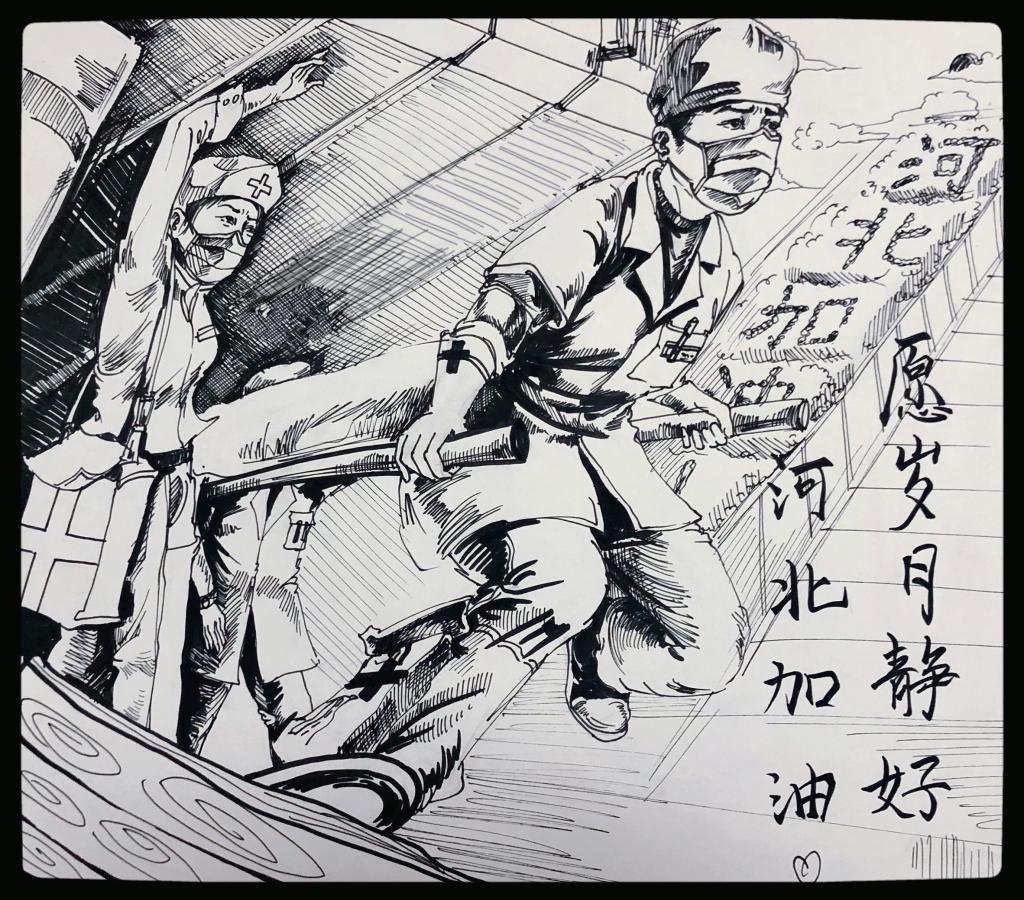 河北加油
愿岁月静好
河北加油